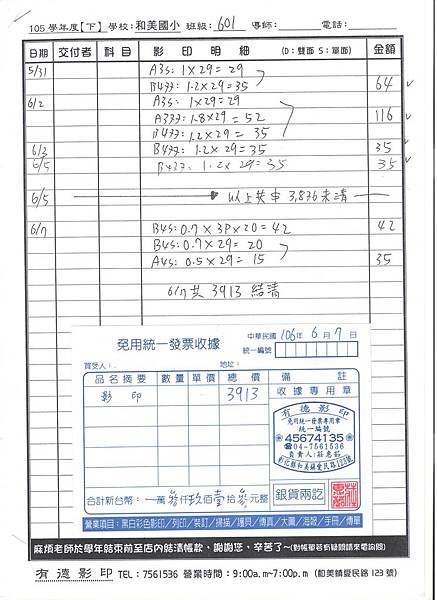 105 學年度【下】學校:和美國小 班級:601 導師: 電話:
日期 交付者 科目 影印明細 (D:雙面 S:單面) 金額
5/31 A3S: 1×29=29
B4邓: 1.2×29=35 64 ✓
6/2 A3S: 1×29=29
1.8×29=52 116 ✓
1.2×29=35
6/3 1.2×29=35 35 ✓
6/5 1.2×29=35 35 ✓
6/5 以上共串 3,836未清
6/7 B4S: 0.7×3P×20=42 42
B4S: 0.7×29=20
A4S: 0.5×29=15 35
6/7共 3913 結清
免用統一發票收據
中華民國 106年 6月 7日
統一編號
買受人: 地址:
品名摘要 數量 單價 總價 備註
影印 3913 收據專用章
有德影印
免用統一發票專用章
統一編號
45674135
☎04-7561536
負責人:莊忠茹
彰化縣和美鎮愛民路123號
合計新台幣: 萬參仟玖佰壹拾參元整 銀貨兩訖
營業項目:黑白彩色影印/列印/裝訂/掃描/護貝/傳真/大圖/海報/手冊/傳單
麻煩老師於學年結束前至店內結清帳款,謝謝您,辛苦了~(對帳單若有疑問請來電詢問)
有德影印 TEL:7561536 營業時間:9:00a.m~7:00p.m (和美鎮愛民路123號)